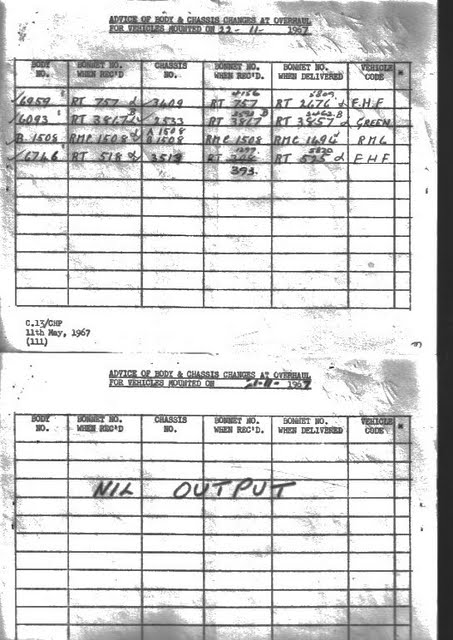 ADVICE OF BODY & CHASSIS CHANGES AT OVERHAUL
FOR VEHICLES MOUNTED ON 22-11- 1967
BODY NO. BONNET NO. WHEN REC'D CHASSIS NO. BONNET NO. WHEN REC'D. BONNET NO. WHEN DELIVERED VEHICLE CODE *
6959 RT 757 3409 4156 RT 757 5809 RT 2676 F.H.F
6093 RT 3817 2533 RT 3817 RT 3857 GREEN
B 1508 RMC 1508 A 1508 B 1508 RMC 1508 RMC 1494 RMC
6746 RT 518 3519 1297 RT 5820 RT 525 F.H.F
393.
C.13/CHP
11th May, 1967
(111)
ADVICE OF BODY & CHASSIS CHANGES AT OVERHAUL
FOR VEHICLES MOUNTED ON 21-11- 1967
BODY NO. BONNET NO. WHEN REC'D CHASSIS NO. BONNET NO. WHEN REC'D. BONNET NO. WHEN DELIVERED VEHICLE CODE *
NIL OUTPUT